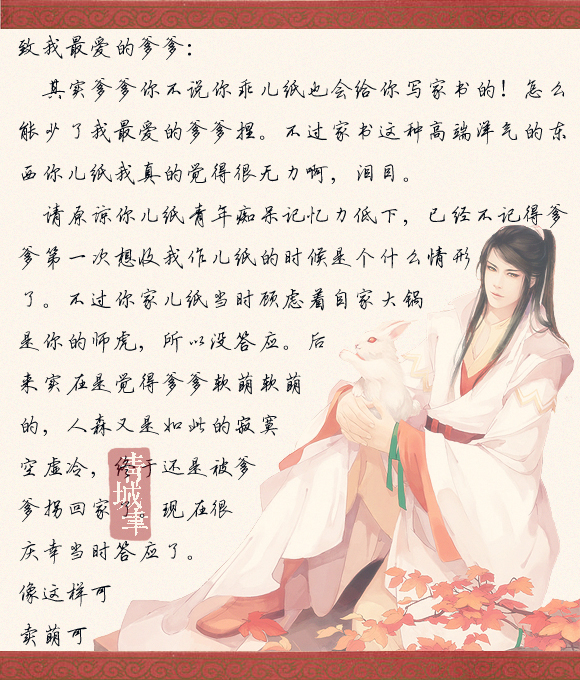 致我最爱的爹爹：
其实爹爹你不说你乖儿纸也会给你写家书的！怎么
能少了我最爱的爹爹捏。不过家书这种高端洋气的东
西你儿纸我真的觉得很无力啊，泪目。
请原谅你儿纸青年痴呆记忆力低下，已经不记得爹
爹第一次想收我作儿纸的时候是个什么情形
了。不过你家儿纸当时顾虑着自家大锅
是你的师虎，所以没答应。后
来实在是觉得爹爹软萌软萌
的，人森又是如此的寂寞
空虚冷，终于还是被爹
爹拐回家了。现在很
庆幸当时答应了。
像这样可
卖萌可
青城聿